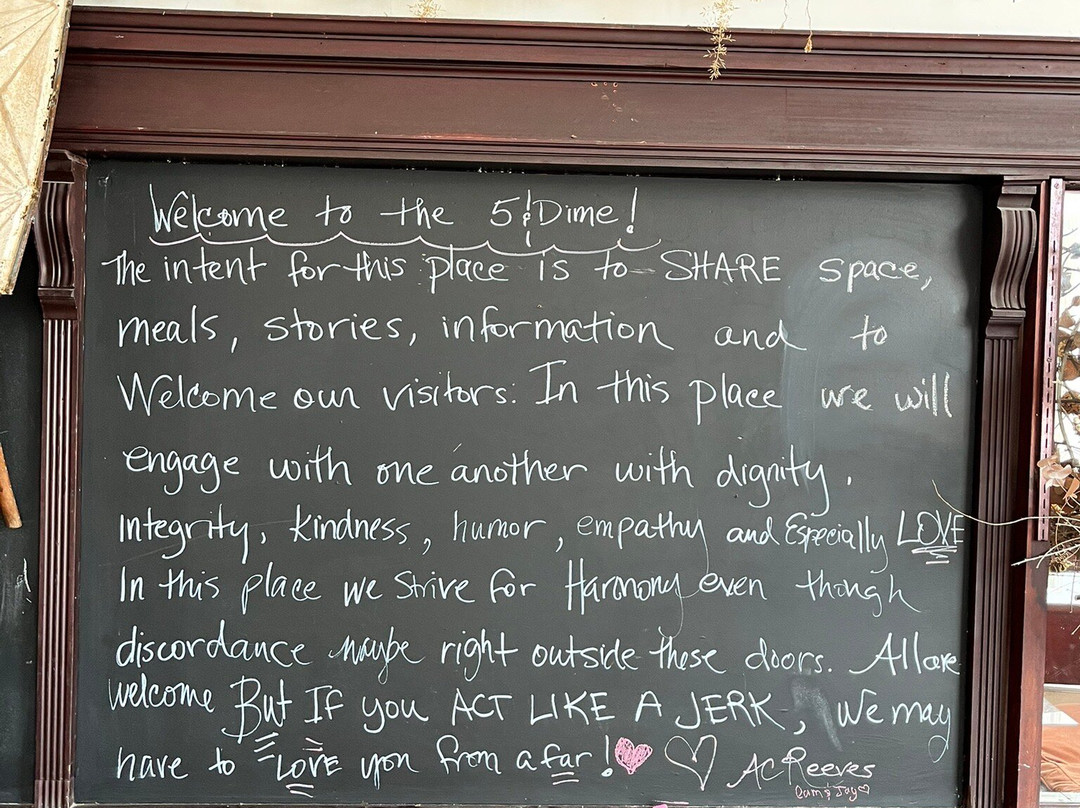 Welcome to the 5 & Dime!
The intent for this place is to SHARE space,
meals, stories, information and to
Welcome our visitors. In this place we will
engage with one another with dignity,
Integrity, kindness, humor, empathy and Especially LOVE
In this place we strive for Harmony even though
discordance maybe right outside these doors. All are
welcome But IF you ACT LIKE A JERK, We may
have to LOVE you from afar! AC Reeves